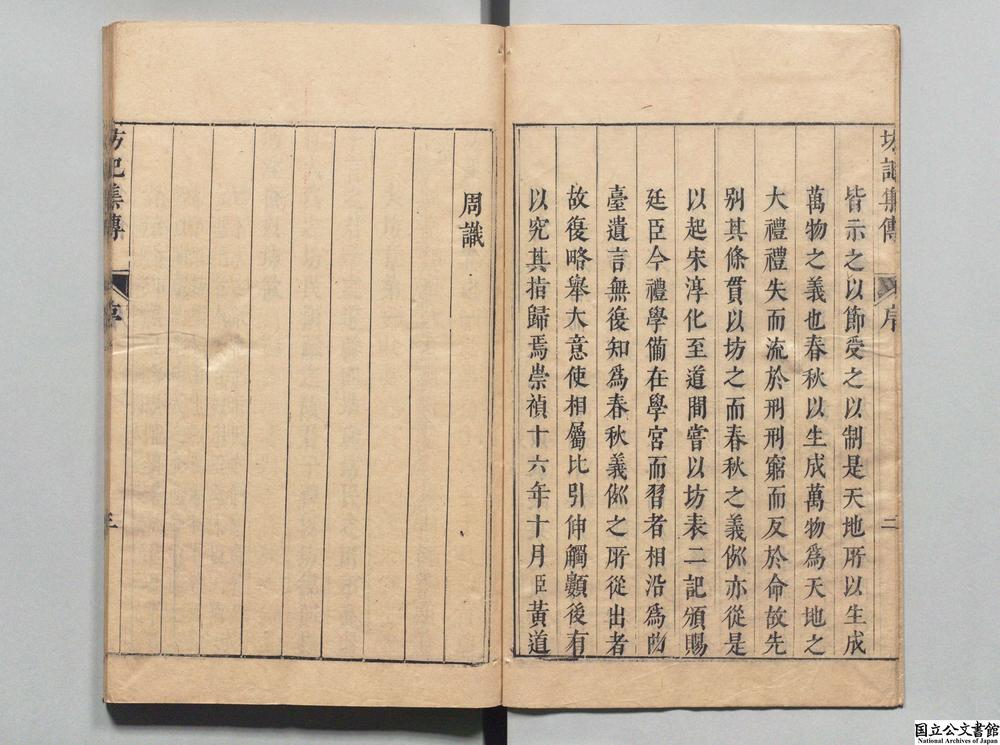 坊記集傳
序
二
皆示之以節受之以制是天地所以生成
萬物之義也春秋以生成萬物爲天地之
大禮禮失而流於刑刑窮而反於命故先
別其條貫以坊之而春秋之義例亦從是
以起宋淳化至道間嘗以坊表二記頒賜
廷臣今禮學備在學宮而習者相沿爲
臺遺言無復知爲春秋義例之所從出者
故復略舉大意使相屬比引伸觸類後有
以究其指歸焉崇禎十六年十月臣黃道
周識
坊記集傳
序
三
国立公文書館
National Archives of Japan